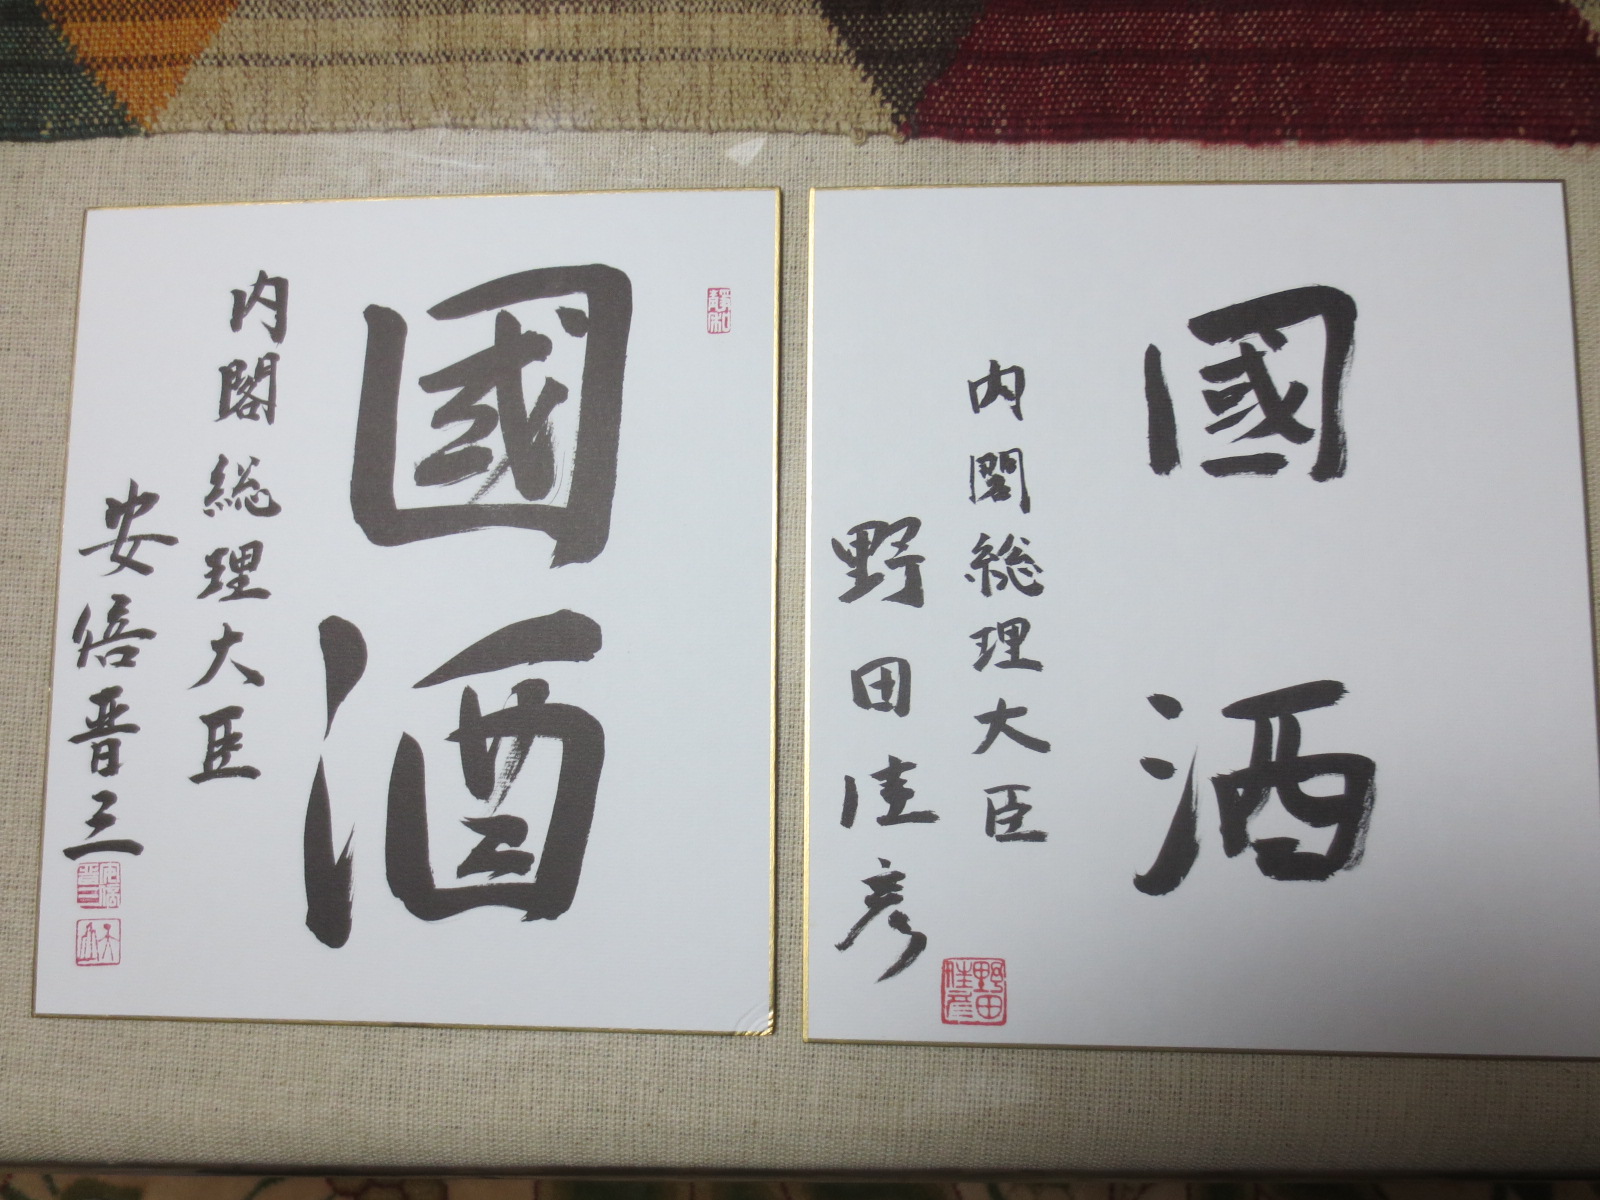 國酒
内閣総理大臣
野田佳彦
野田佳彦
國酒
内閣総理大臣
安倍晋三
安倍晋三